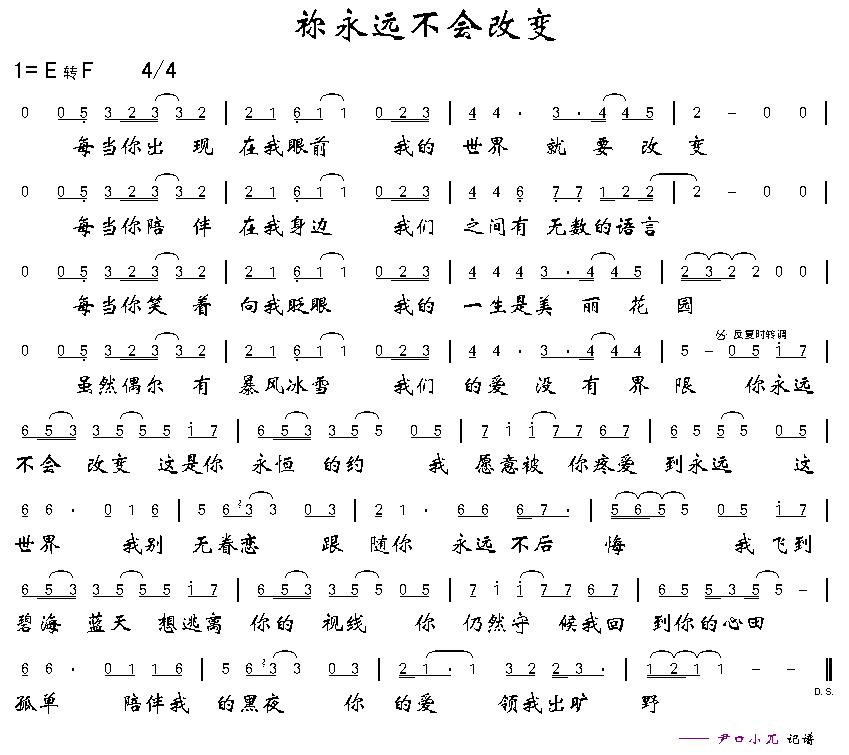 祢永远不会改变
1= E 转 F 4/4
0 0 5 3 2 3 3 2 | 2 1 6 1 1 0 2 3 | 4 4 · 3 · 4 4 5 | 2 – 0 0 |
每当你出 现 在我眼前 我的 世界 就 要 改 变
0 0 5 3 2 3 3 2 | 2 1 6 1 1 0 2 3 | 4 4 6 7 7 1 2 2 | 2 – 0 0 |
每当你陪 伴 在我身边 我们 之间有 无数的语言
0 0 5 3 2 3 3 2 | 2 1 6 1 1 0 2 3 | 4 4 4 3 · 4 4 5 | 2 3 2 2 2 0 0 |
每当你笑 着 向我眨眼 我的 一生是美 丽 花 园
𝄋 反复时转调
0 0 5 3 2 3 3 2 | 2 1 6 1 1 0 2 3 | 4 4 · 3 · 4 4 4 | 5 – 0 5 i 7 |
虽然偶尔 有 暴风冰雪 我们 的爱 没 有 界 限 你永远
6 5 3 3 5 5 5 i 7 | 6 5 3 3 5 5 0 5 | 7 i i 7 7 6 7 | 6 5 5 5 0 5 |
不会 改变 这是你 永恒 的约 我 愿意被 你疼爱 到永远 这
6 6 · 0 1 6 | 5 6 3 3 0 3 | 2 1 · 6 6 7 · | 5 6 5 5 0 5 i 7 |
世界 我别 无眷恋 跟 随你 永远 不后 悔 我 飞到
6 5 3 3 5 5 5 i 7 | 6 5 3 3 5 5 0 5 | 7 i i 7 7 6 7 | 6 5 5 3 5 5 – |
碧海 蓝天 想逃离 你的 视线 你 仍然守 候我回 到你的心田
6 6 · 0 1 1 6 | 5 6 3 3 0 3 | 2 1 · 1 3 2 2 3 · | 1 2 1 1 – – ‖
D.S.
孤单 陪伴我 的黑夜 你 的爱 领我出旷 野
—— 尹口小兀 记谱